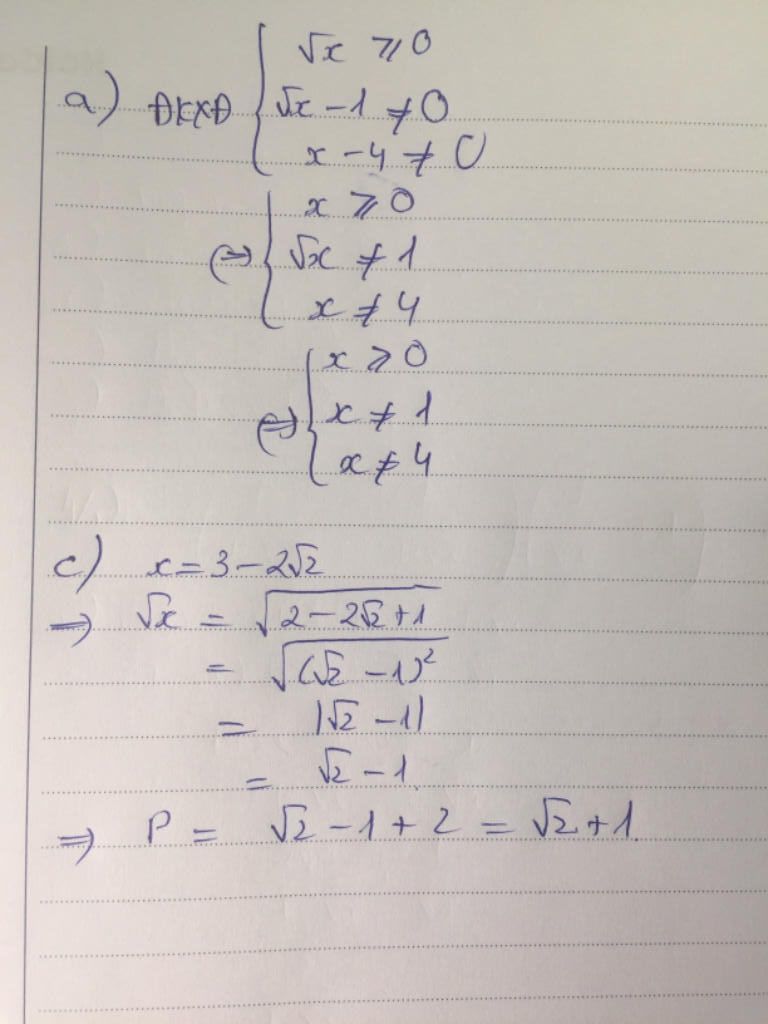 a) ĐKXĐ { √x ⩾ 0
√x - 1 ≠ 0
x - 4 ≠ 0
(⇒) { x ⩾ 0
√x ≠ 1
x ≠ 4
(⇒) { x ⩾ 0
x ≠ 1
x ≠ 4
c) x = 3 - 2√2
⇒ √x = √(2 - 2√2 + 1)
= √((√2 - 1)²)
= |√2 - 1|
= √2 - 1
⇒ P = √2 - 1 + 2 = √2 + 1.